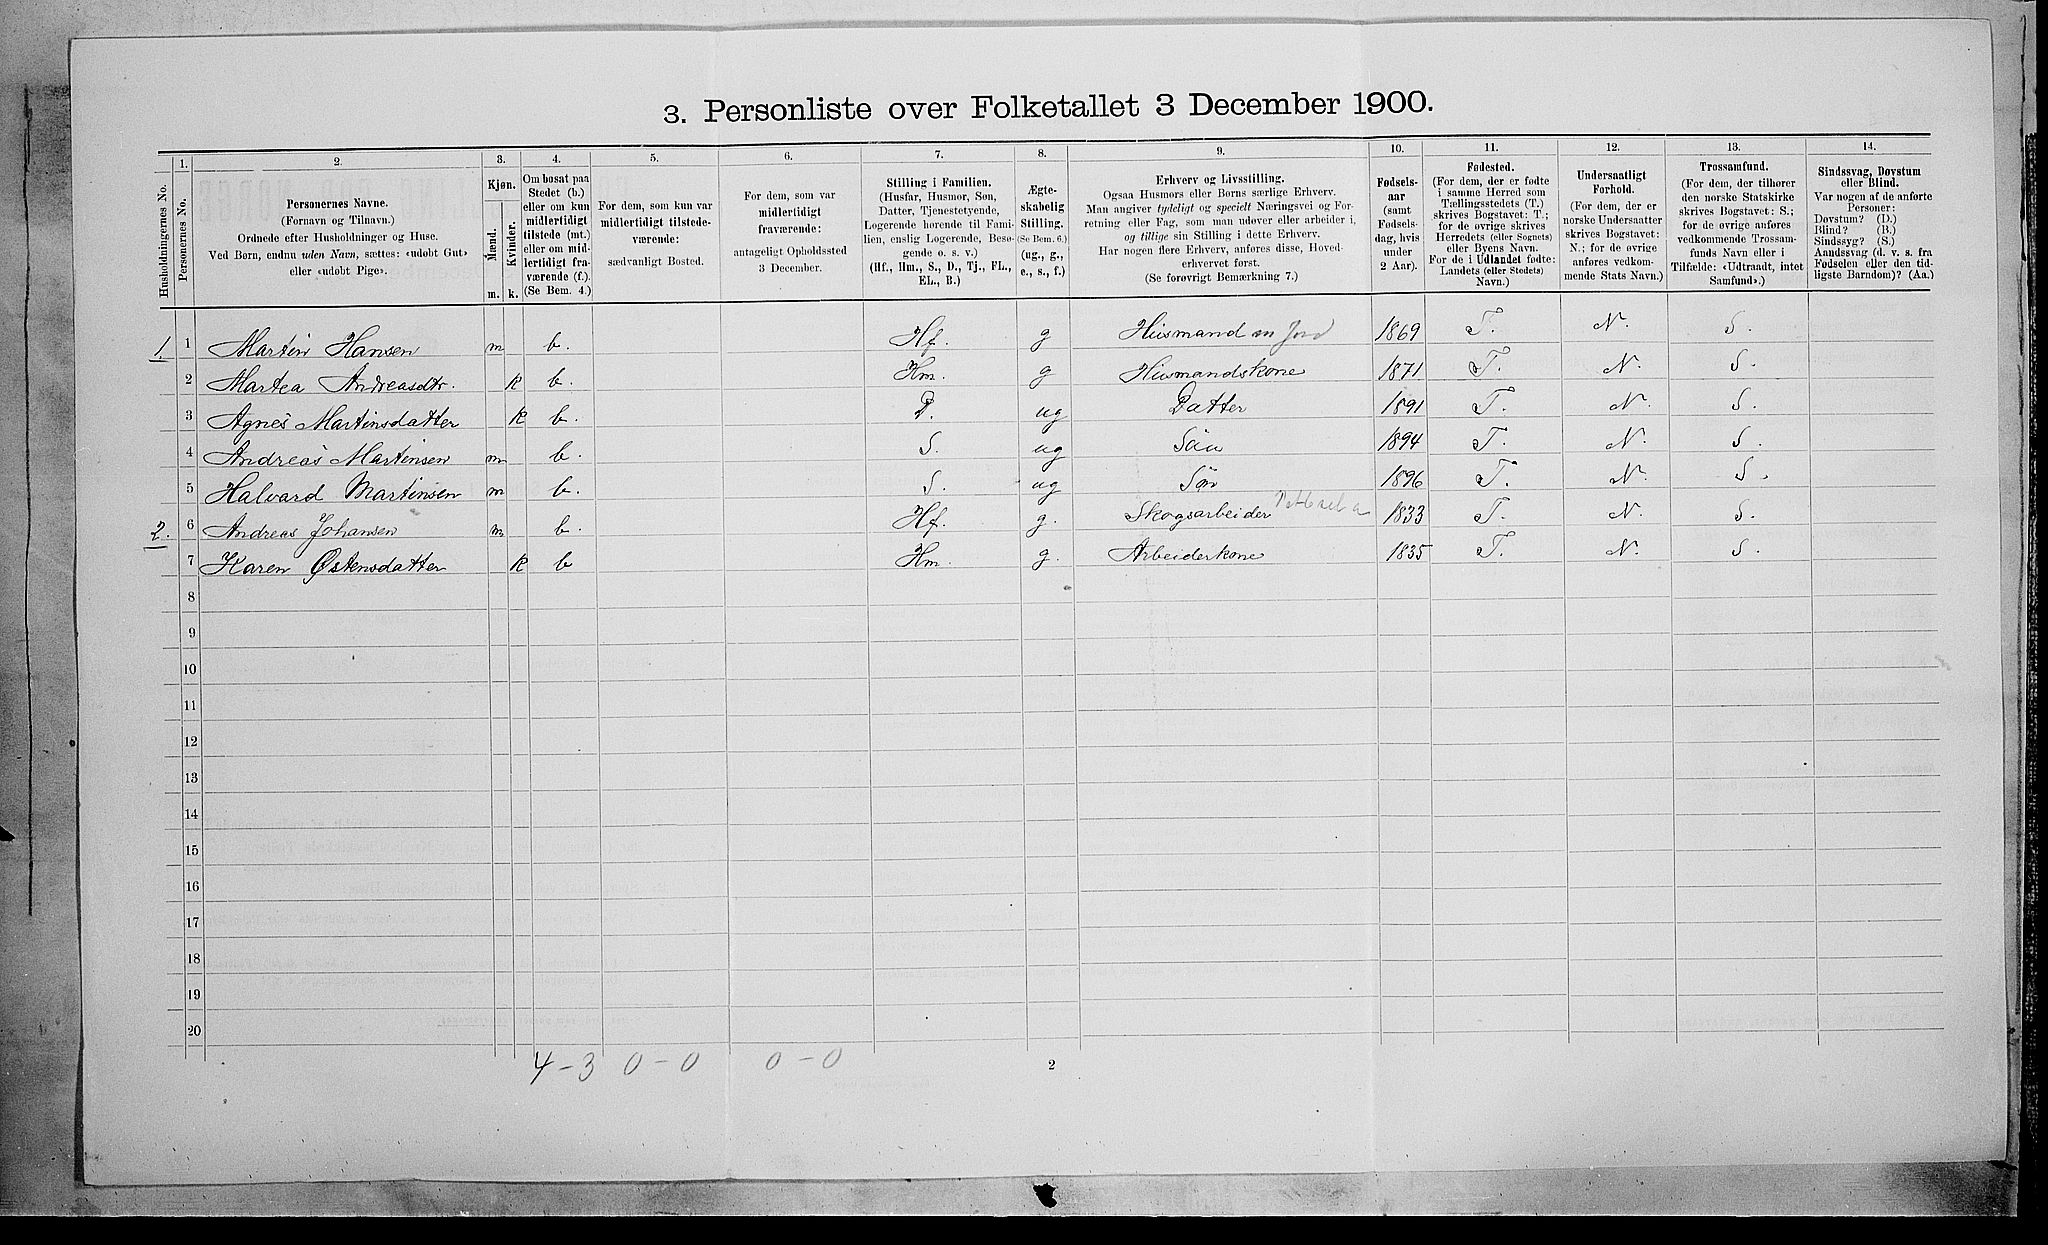 3. Personliste over Folketallet 3 December 1900.
1. 2. 3. 4. 5. 6. 7. 8. 9. 10. 11. 12. 13. 14.
Husholdningernes No.
Personernes No.
Personernes Navne.
(Fornavn og Tilnavn.)
Ordnede efter Husholdninger og Huse.
Ved Børn, endnu uden Navn, sættes: «udøbt Gut»
eller «udøbt Pige».
Kjøn.
Mænd.
Kvinder.
m. k.
Om bosat paa
Stedet (b.)
eller om kun
midlertidigt
tilstede (mt.)
eller om mid-
lertidigt fra-
værende (f.).
(Se Bem. 4.)
For dem, som kun var
midlertidigt tilstede-
værende:
sædvanligt Bosted.
For dem, som var
midlertidigt
fraværende:
antageligt Opholdssted
3 December.
Stilling i Familien.
(Husfar, Husmor, Søn,
Datter, Tjenestetyende,
Logerende hørende til Fami-
lien, enslig Logerende, Besø-
gende o. s. v.)
(Hf., Hm., S., D., Tj., FL.,
EL., B.)
Ægte-
skabelig
Stilling.
(Se Bem. 6.)
(ug., g.,
e., s., f.)
Erhverv og Livsstilling.
Ogsaa Husmors eller Børns særlige Erhverv.
Man angiver tydeligt og specielt Næringsvei og For-
retning eller Fag, som man udøver eller arbeider i,
og tillige sin Stilling i dette Erhverv.
Har nogen flere Erhverv, anføres disse, Hoved-
erhvervet først.
(Se forøvrigt Bemærkning 7.)
Fødsels-
aar
(samt
Fødsels-
dag, hvis
under
2 Aar).
Fødested.
(For dem, der er fødte
i samme Herred som
Tællingsstedets (T.)
skrives Bogstavet: T.;
for de øvrige skrives
Herredets (eller Sognets)
eller Byens Navn.
For de i Udlandet fødte:
Landets (eller Stedets)
Navn.)
Undersaatligt
Forhold.
(For dem, der er
norske Undersaatter
skrives Bogstavet:
N.; for de øvrige
anføres vedkom-
mende Stats Navn.)
Trossamfund.
(For dem, der tilhører
den norske Statskirke
skrives Bogstavet: S.;
for de øvrige anføres
vedkommende Trossam-
funds Navn eller i
Tilfælde: «Udtraadt, intet
Samfund».)
Sindssvag, Døvstum
eller Blind.
Var nogen af de anførte
Personer:
Døvstum? (D.)
Blind? (B.)
Sindssyg? (S.)
Aandssvag (d. v. s. fra
Fødselen eller den tid-
ligste Barndom)? (Aa.)
1. 1 Martin Hansen m b. Hf. g Husmand m Jord 1869 T. N. S.
2 Martea Andreasdtr. k b. Hm. g Husmandskone 1871. T. N. S.
3 Agnes Martinsdatter k b. D. ug Datter 1891 T. N. S.
4 Andreas Martinsen m b. S. ug Søn 1894 T. N. S.
5 Halvard Martinsen m b. S. ug Søn 1896 T. N. S.
2. 6 Andreas Johansen m b. Hf. g. Skogsarbeider 1833 T. N. S.
7 Karen Østensdatter k b Hm. g. Arbeiderkone 1835 T. N. S.
8
9
10
11
12
13
14
15
16
17
18
19
20
4-3 0-0 0-0 2